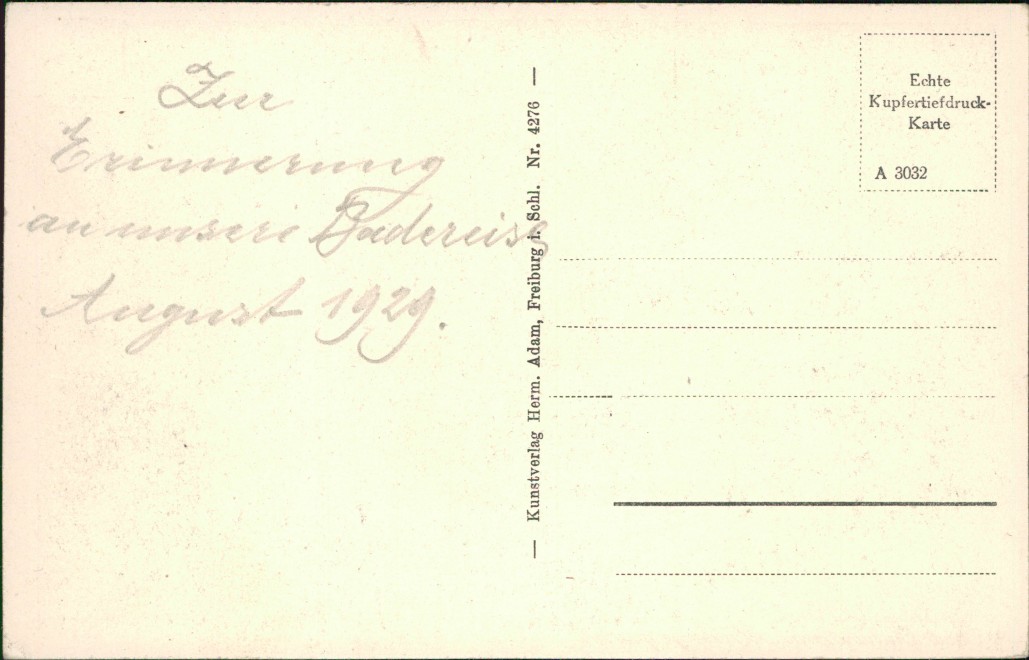 Zur
Erinnerung
an unsere Badereise
August 1929.
— Kunstverlag Herm. Adam, Freiburg i. Schl. Nr. 4276 —
Echte
Kupfertiefdruck-
Karte
A 3032